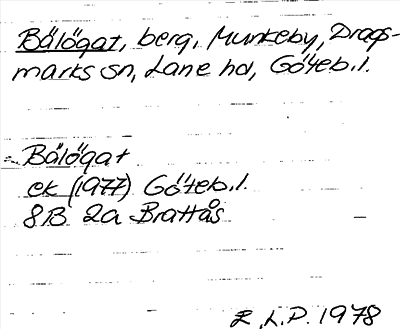 Bålögat, berg, Munkeby, Drags-
marks sn, Lane hd, Göteb.l.
Bålögat
ek (1977) Göteb.l.
8B 2a Brattås
R.L.P. 1978